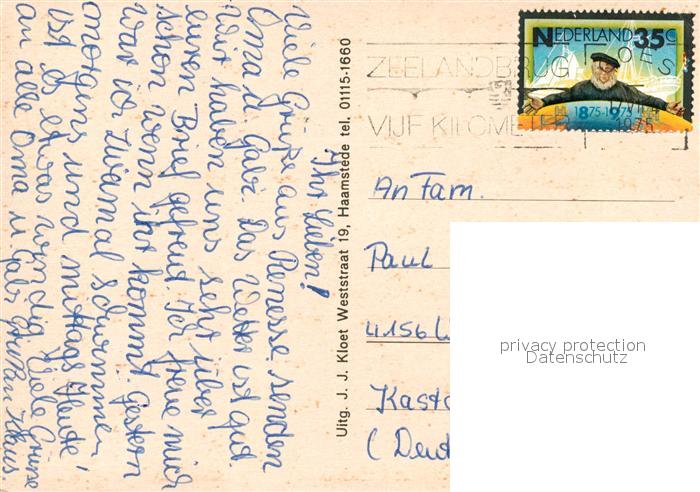 Ihr lieben!
Viele Grüße aus Renesse senden
Oma u Gabi. Das Wetter ist gut.
Wir haben uns sehr über
euren Brief gefreut. Ich freue mich
schon wenn ihr kommt. Gestern
war ich zwiamal schwimmen
morgens und mittags. Heute
ist es etwas windig. Viele Grüße
an alle Oma u Gabi
Uitg. J. J. Kloet Weststraat 19, Haamstede tel. 01115-1660
NEDERLAND 35c
1875-1975
ZEELANDBRUG
VIJF KILOMETER
GOES
1975
An Fam.
Paul
4156
Kasta
(Deut
privacy protection
Datenschutz